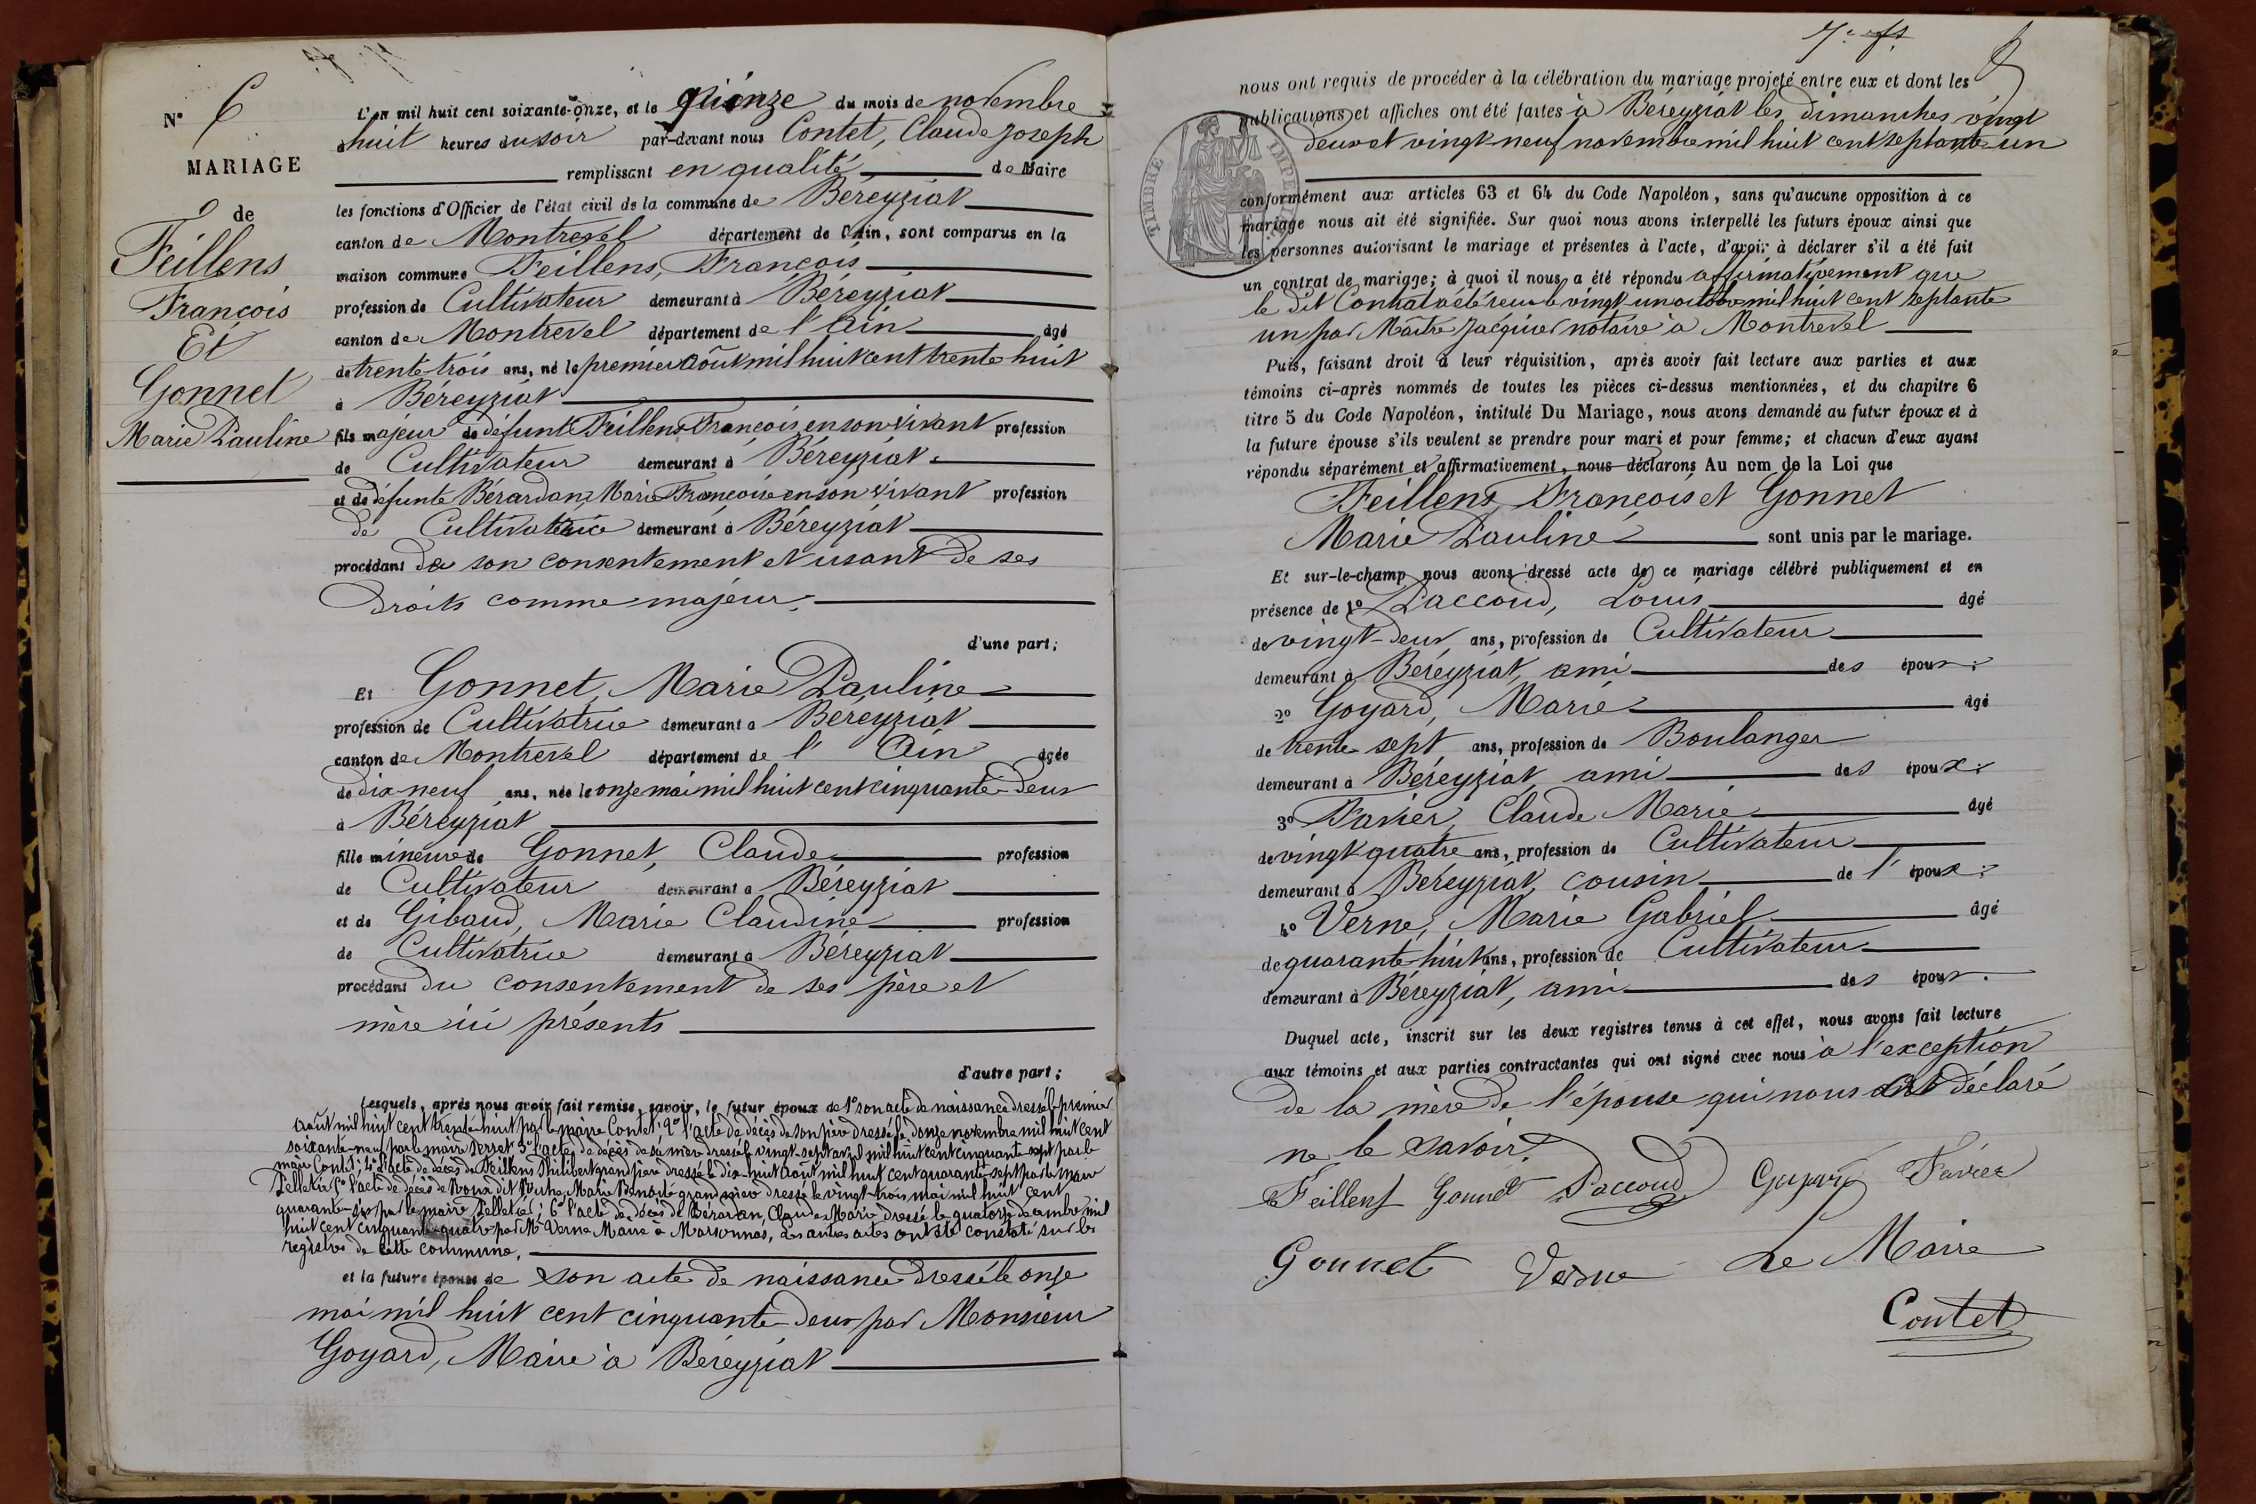 N° 6
MARIAGE
de
Feillens
François
Et
Gonnet
Marie Pauline
L'an mil huit cent soixante-onze, et le quinze du mois de novembre
à huit heures du soir par-devant nous Contet, Claude Joseph
remplissant en qualité de Maire
les fonctions d'Officier de l'état civil de la commune de Béreyziat
canton de Montrevel département de l'Ain, sont comparus en la
maison commune Feillens, François
profession de Cultivateur demeurant à Béreyziat
canton de Montrevel département de l'Ain âgé
de trente-trois ans, né le premier août mil huit cent trente huit
à Béreyziat
fils majeur de défunt Feillens François en son vivant profession
de Cultivateur demeurant à Béreyziat
et de défunte Bérardan, Marie Françoise en son vivant profession
de Cultivatrice demeurant à Béreyziat
procédant de son consentement et usant de ses
droits comme majeur,
d'une part;
Et Gonnet, Marie Pauline
profession de Cultivatrice demeurant à Béreyziat
canton de Montrevel département de l'Ain âgée
de dix neuf ans, née le onze mai mil huit cent cinquante-deux
à Béreyziat
fille mineure de Gonnet, Claude profession
de Cultivateur demeurant à Béreyziat
et de Gibaud, Marie Claudine profession
de Cultivatrice demeurant à Béreyziat
procédant du consentement de ses père et
mère ici présents
d'autre part;
Lesquels, après nous avoir fait remise, savoir, le futur époux de 1° son acte de naissance dressé le premier
août mil huit cent trente huit par le maire Contet; 2° l'acte de décès de son père dressé le donze novembre mil huit cent
soixante-neuf par le maire Perret 3° l'acte de décès de sa mère dressé le vingt-sept avril mil huit cent cinquante sept par le
maire Contet; 4° l'acte de décès de Feillens Philibert grand père dressé le dix-huit août mil huit cent quarante-sept par le maire
Pelletier 5° l'acte de décès de Roux dit Marie Benoite grand mère dressé le vingt-trois mai mil huit cent
quarante-six par le maire Pelletier; 6° l'acte de décès de Bérardan, Claude Marie dressé le quatorze décembre mil
huit cent cinquante-quatre par Mr Verne Maire à Marsonnas, Les autres actes ont été constaté sur les
registres de cette commune,
et la future épouse de son acte de naissance dressé le onze
mai mil huit cent cinquante-deux par Monsieur
Goyard, Maire à Béreyziat
nous ont requis de procéder à la célébration du mariage projeté entre eux et dont les
publications et affiches ont été faites à Béreyziat les dimanches vingt
deux et vingt-neuf novembre mil huit cent septante-un
TIMBRE IMPE
conformément aux articles 63 et 64 du Code Napoléon, sans qu'aucune opposition à ce
mariage nous ait été signifiée. Sur quoi nous avons interpellé les futurs époux ainsi que
les personnes autorisant le mariage et présentes à l'acte, d'avoir à déclarer s'il a été fait
un contrat de mariage; à quoi il nous a été répondu affirmativement que
le dit Contrat a été reçu le vingt-un octobre mil huit cent septante
un par Maître Jacquier notaire à Montrevel
Puis, faisant droit à leur réquisition, après avoir fait lecture aux parties et aux
témoins ci-après nommés de toutes les pièces ci-dessus mentionnées, et du chapitre 6
titre 5 du Code Napoléon, intitulé Du Mariage, nous avons demandé au futur époux et à
la future épouse s'ils veulent se prendre pour mari et pour femme; et chacun d'eux ayant
répondu séparément et affirmativement, nous déclarons Au nom de la Loi que
Feillens, François et Gonnet
Marie Pauline sont unis par le mariage.
Et sur-le-champ nous avons dressé acte de ce mariage célébré publiquement et en
présence de 1° Paccoud, Louis âgé
de vingt-deux ans, profession de Cultivateur
demeurant à Béreyziat, ami des époux;
2° Goyard, Marie âgé
de trente sept ans, profession de Boulanger
demeurant à Béreyziat ami des époux;
3° Favier, Claude Marie âgé
de vingt quatre ans, profession de Cultivateur
demeurant à Béreyziat, cousin de l'époux;
4° Verne, Marie Gabriel âgé
de quarante-huit ans, profession de Cultivateur
demeurant à Béreyziat, ami des époux.
Duquel acte, inscrit sur les deux registres tenus à cet effet, nous avons fait lecture
aux témoins et aux parties contractantes qui ont signé avec nous à l'exception
de la mère de l'épouse qui nous ont déclaré
ne le savoir.
Feillens Gonnet Paccoud Goyard Favier
Gonnet Verne Le Maire
Contet